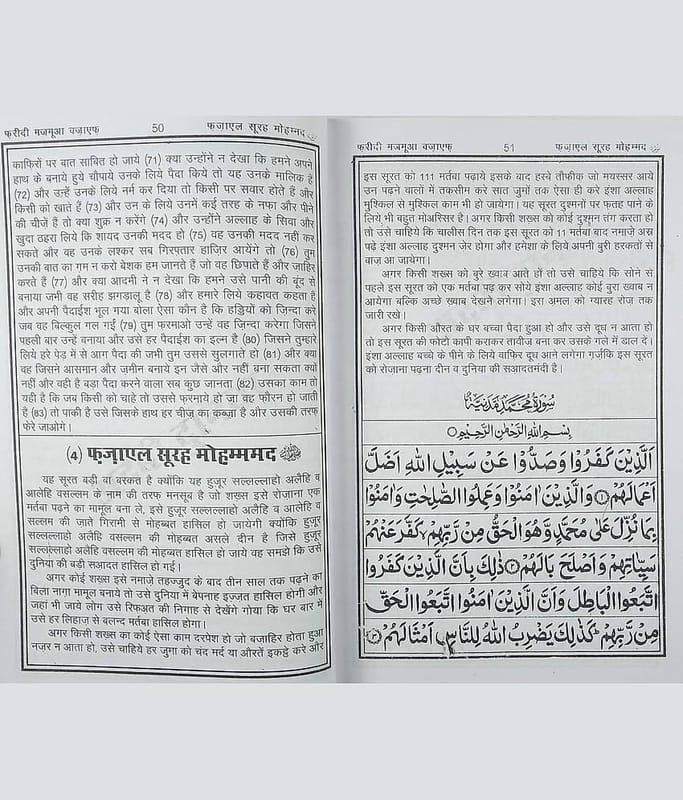 फरीदी मजमूआ वज़ाएफ 50 फज़ाएल सूरह मोहम्मद
काफिरों पर बात साबित हो जाये (71) क्या उन्होंने न देखा कि हमने अपने
हाथ के बनाये हुये चौपाये उनके लिये पैदा किये तो यह उनके मालिक हैं
(72) और उन्हें उनके लिये नर्म कर दिया तो किसी पर सवार होते हैं और
किसी को खाते हैं (73) और उन के लिये उनमें कई तरह के नफा और पीने
की चीज़ें हैं तो क्या शुक्र न करेंगे (74) और उन्होंने अल्लाह के सिवा और
खुदा ठहरा लिये कि शायद उनकी मदद हो (75) वह उनकी मदद नहीं कर
सकते और वह उनके लश्कर सब गिरफ्तार हाज़िर आयेंगे तो (76) तुम
उनकी बात का गम न करो बेशक हम जानते हैं जो वह छिपाते हैं और जाहिर
करते हैं (77) और क्या आदमी ने न देखा कि हमने उसे पानी की बूंद से
बनाया जभी वह सरीह झगड़ालू है (78) और हमारे लिये कहावत कहता है
और अपनी पैदाईश भूल गया बोला ऐसा कौन है कि हड्डियों को ज़िन्दा करे
जब वह बिल्कुल गल गईं (79) तुम फरमाओ उन्हें वह जिन्दा करेगा जिसने
पहली बार उन्हें बनाया और उसे हर पैदाईश का इल्म है (80) जिसने तुम्हारे
लिये हरे पेड़ में से आग पैदा की जभी तुम उससे सुलगाते हो (81) और क्या
वह जिसने आसमान और जमीन बनाये इन जैसे और नहीं बना सकता क्यों
नहीं और वही है बड़ा पैदा करने वाला सब कुछ जानता (82) उसका काम तो
यही है कि जब किसी को चाहे तो उससे फरमाये हो जा वह फौरन हो जाती
है (83) तो पाकी है उसे जिसके हाथ हर चीज़ का कब्जा है और उसकी तरफ
फेरे जाओगे।
(4) फज़ाएल सूरह मोहम्ममद
यह सूरत बड़ी बा बरकत है क्योंकि यह हुज़ूर सल्लल्लाहो अलैहि व
आलेहि वसल्लम के नाम की तरफ मनसूब है जो शख्स इसे रोजाना एक
मर्तबा पढ़ने का मामूल बना ले, इसे हुज़ूर सल्लल्लाहो अलैहि व आलेहि व
सल्लम की जाते गिरामी से मोहब्बत हासिल हो जायेगी क्योंकि हुज़ूर
सल्लल्लाहो अलैहि वसल्लम की मोहब्बत असले दीन है जिसे हुज़ूर
सल्लल्लाहो अलेहि वसल्लम की मोहब्बत हासिल हो जाये वह समझे कि उसे
दुनिया की बड़ी सआदत हासिल हो गई।
अगर कोई शख्स इसे नमाज़े तहज्जुद के बाद तीन साल तक पढ़ने का
बिला नाग़ा मामूल बनाये तो उसे दुनिया में बेपनाह इज़्ज़त हासिल होगी और
जहां भी जाये लोग उसे रिफअत की निगाह से देखेंगे गोया कि घर बार में
उसे हर लिहाज से बलन्द मर्तबा हासिल होगा।
अगर किसी शख्स का कोई ऐसा काम दरपेश हो जो बज़ाहिर होता हुआ
नज़र न आता हो, उसे चाहिये हर जुमा को चंद मर्द या औरतें इकट्ठे करे और
फरीदी मजमूआ वज़ाएफ 51 फज़ाएल सूरह मोहम्मद
इस सूरत को 111 मर्तबा पढ़ाये इसके बाद हस्बे तौफीक़ जो मयस्सर आये
उन पढ़ने वालों में तकसीम करे सात जुमों तक ऐसा ही करे इंशा अल्लाह
मुश्किल से मुश्किल काम भी हो जायेगा। यह सूरत दुश्मनों पर फ़तह पाने के
लिये भी बहुत मोअस्सिर है। अगर किसी शख़्स को कोई दुश्मन तंग करता हो
तो उसे चाहिये कि चालीस दिन तक इस सूरत को 11 मर्तबा बाद नमाज़े अस्र
पढ़े इंशा अल्लाह दुश्मन जेर होगा और हमेशा के लिये अपनी बुरी हरकतों से
बाज़ आ जायेगा।
अगर किसी शख्स को बुरे ख्वाब आते हों तो उसे चाहिये कि सोने से
पहले इस सूरत को एक मर्तबा पढ़ कर सोये इंशा अल्लाह कोई बुरा ख्वाब न
आयेगा बल्कि अच्छे ख्वाब देखने लगेगा। इस अमल को ग्यारह रोज़ तक
जारी रखे।
अगर किसी औरत के घर बच्चा पैदा हुआ हो और उसे दूध न आता हो
तो इस सूरत की फोटो कापी कराकर तावीज बना कर उसके गले में डाल दे।
इंशा अल्लाह बच्चे के पीने के लिये वाफिर दूध आने लगेगा गर्ज़कि इस सूरत
को रोज़ाना पढ़ना दीन व दुनिया की सआदतमंदी है।
سُوْرَةُ مُحَمَّدٍ مَّدَنِيَّةٌ
بِسْمِ اللهِ الرَّحْمٰنِ الرَّحِيْمِ
اَلَّذِيْنَ كَفَرُوْا وَصَدُّوْا عَنْ سَبِيْلِ اللهِ اَضَلَّ
اَعْمَالَهُمْ ۝۱ وَالَّذِيْنَ اٰمَنُوْا وَعَمِلُوا الصّٰلِحٰتِ وَاٰمَنُوْا
بِمَا نُزِّلَ عَلٰى مُحَمَّدٍ وَّهُوَ الْحَقُّ مِنْ رَّبِّهِمْ كَفَّرَ عَنْهُمْ
سَيِّاٰتِهِمْ وَاَصْلَحَ بَالَهُمْ ۝۲ ذٰلِكَ بِاَنَّ الَّذِيْنَ كَفَرُوا
اتَّبَعُوا الْبَاطِلَ وَاَنَّ الَّذِيْنَ اٰمَنُوا اتَّبَعُوا الْحَقَّ
مِنْ رَّبِّهِمْ كَذٰلِكَ يَضْرِبُ اللهُ لِلنَّاسِ اَمْثَالَهُمْ ۝۳